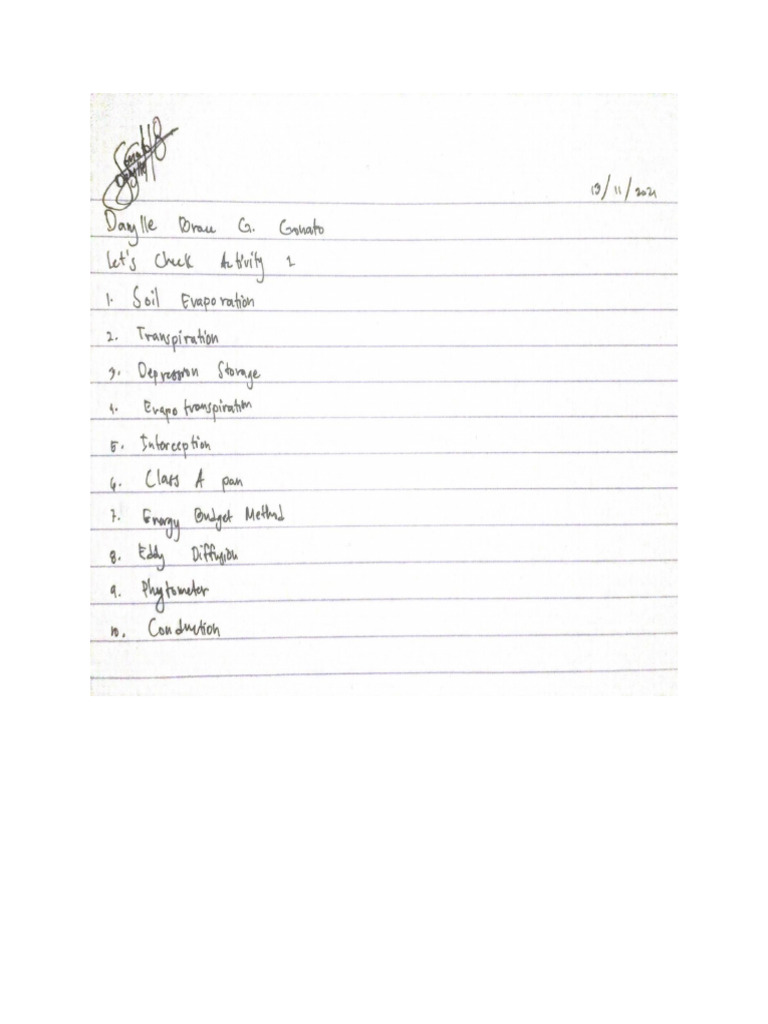 19/11/2021
Darylle Brau G. Gonato
Let's Check Activity 1
1. Soil Evaporation
2. Transpiration
3. Depression Storage
4. Evapotranspiration
5. Interception
6. Class A pan
7. Energy Budget Method
8. Eddy Diffusion
9. Phytometer
10. Conduction